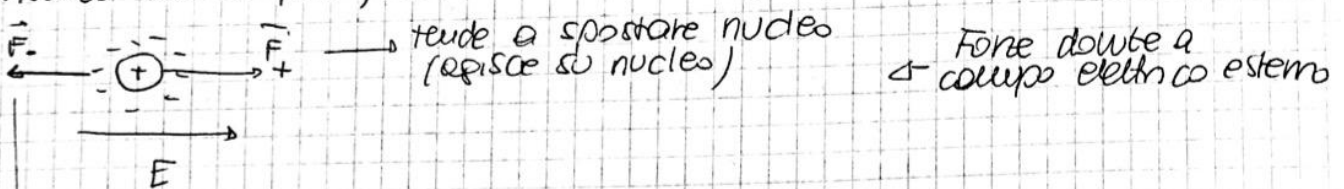 F₋ - - - - (+) - - - - F₊ → tende a spostare nucleo
(agisce su nucleo)
← Forze dovute a
campo elettrico esterno
E